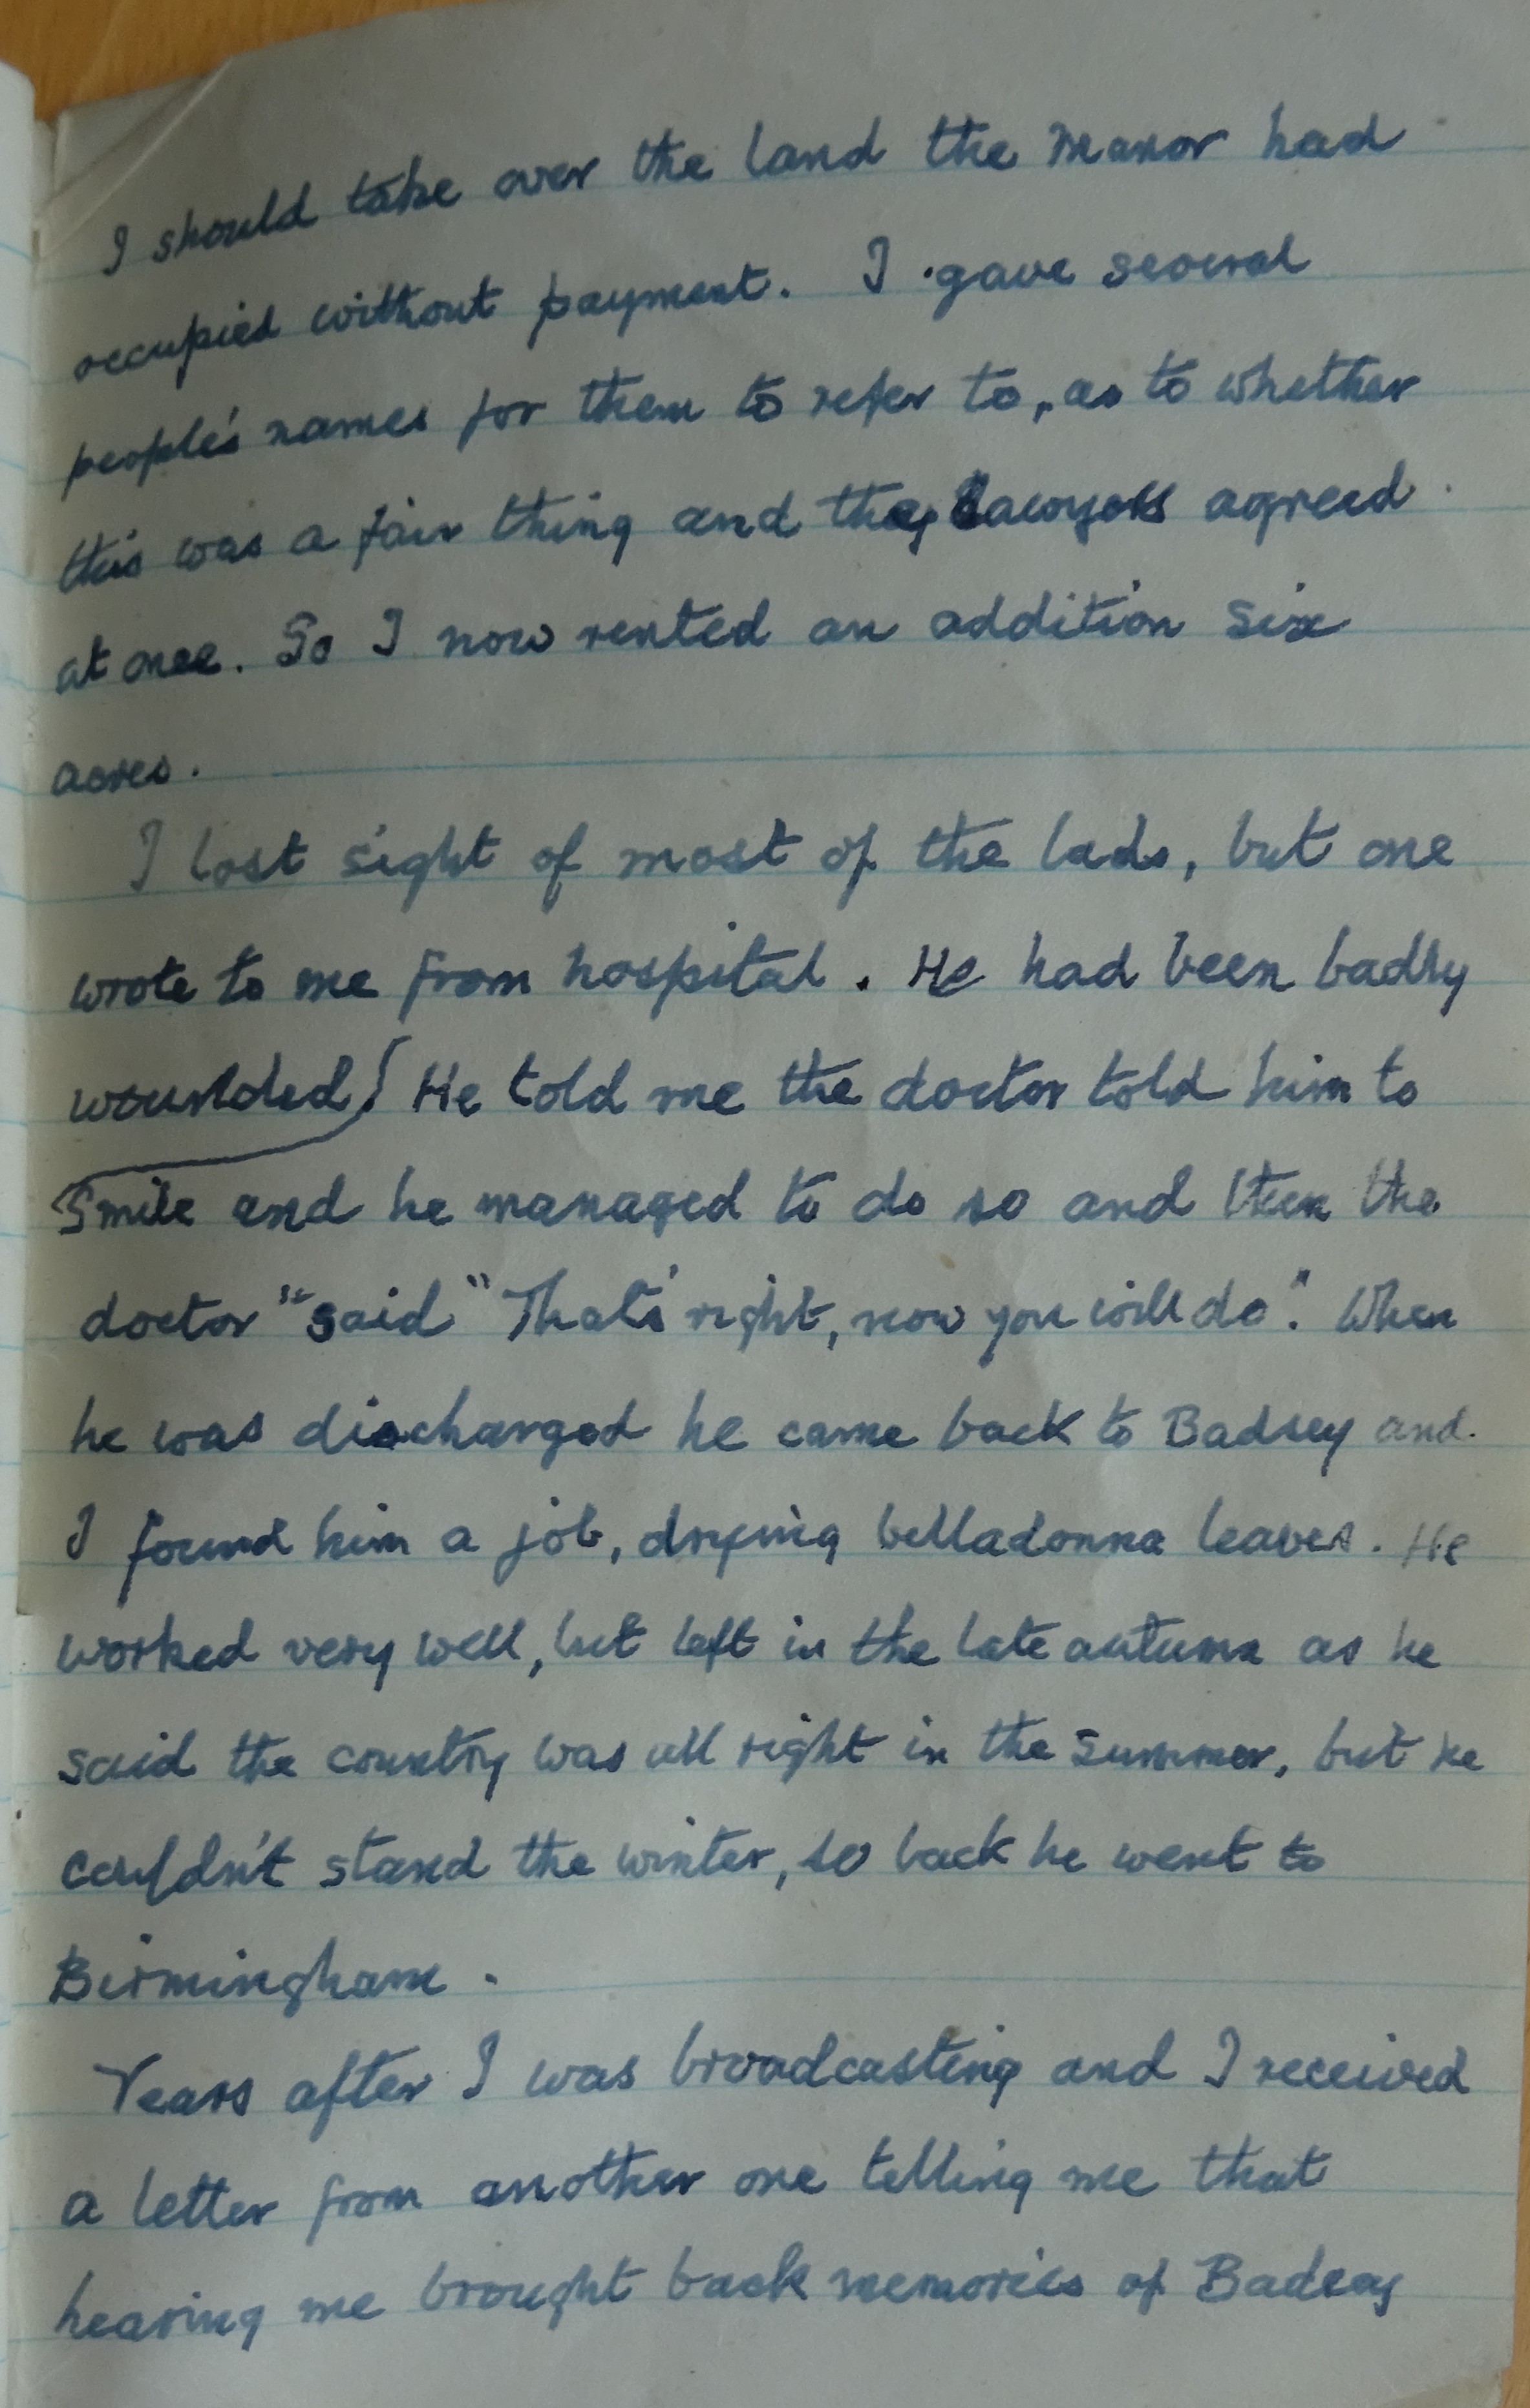 I should take over the land the Manor had
occupied without payment. I gave several
people's names for them to refer to, as to whether
this was a fair thing and they Lawyers agreed
at once. So I now rented an addition six
acres.
I lost sight of most of the lads, but one
wrote to me from hospital. He had been badly
wounded. He told me the doctor told him to
Smile and he managed to do so and then the
doctor "said" "That's right, now you will do". When
he was discharged he came back to Badsey and
I found him a job, drying belladonna leaves. He
worked very well, but left in the late autumn as he
said the country was all right in the Summer, but he
couldn't stand the winter, so back he went to
Birmingham.
Years after I was broadcasting and I received
a letter from another one telling me that
hearing me brought back memories of Badsey